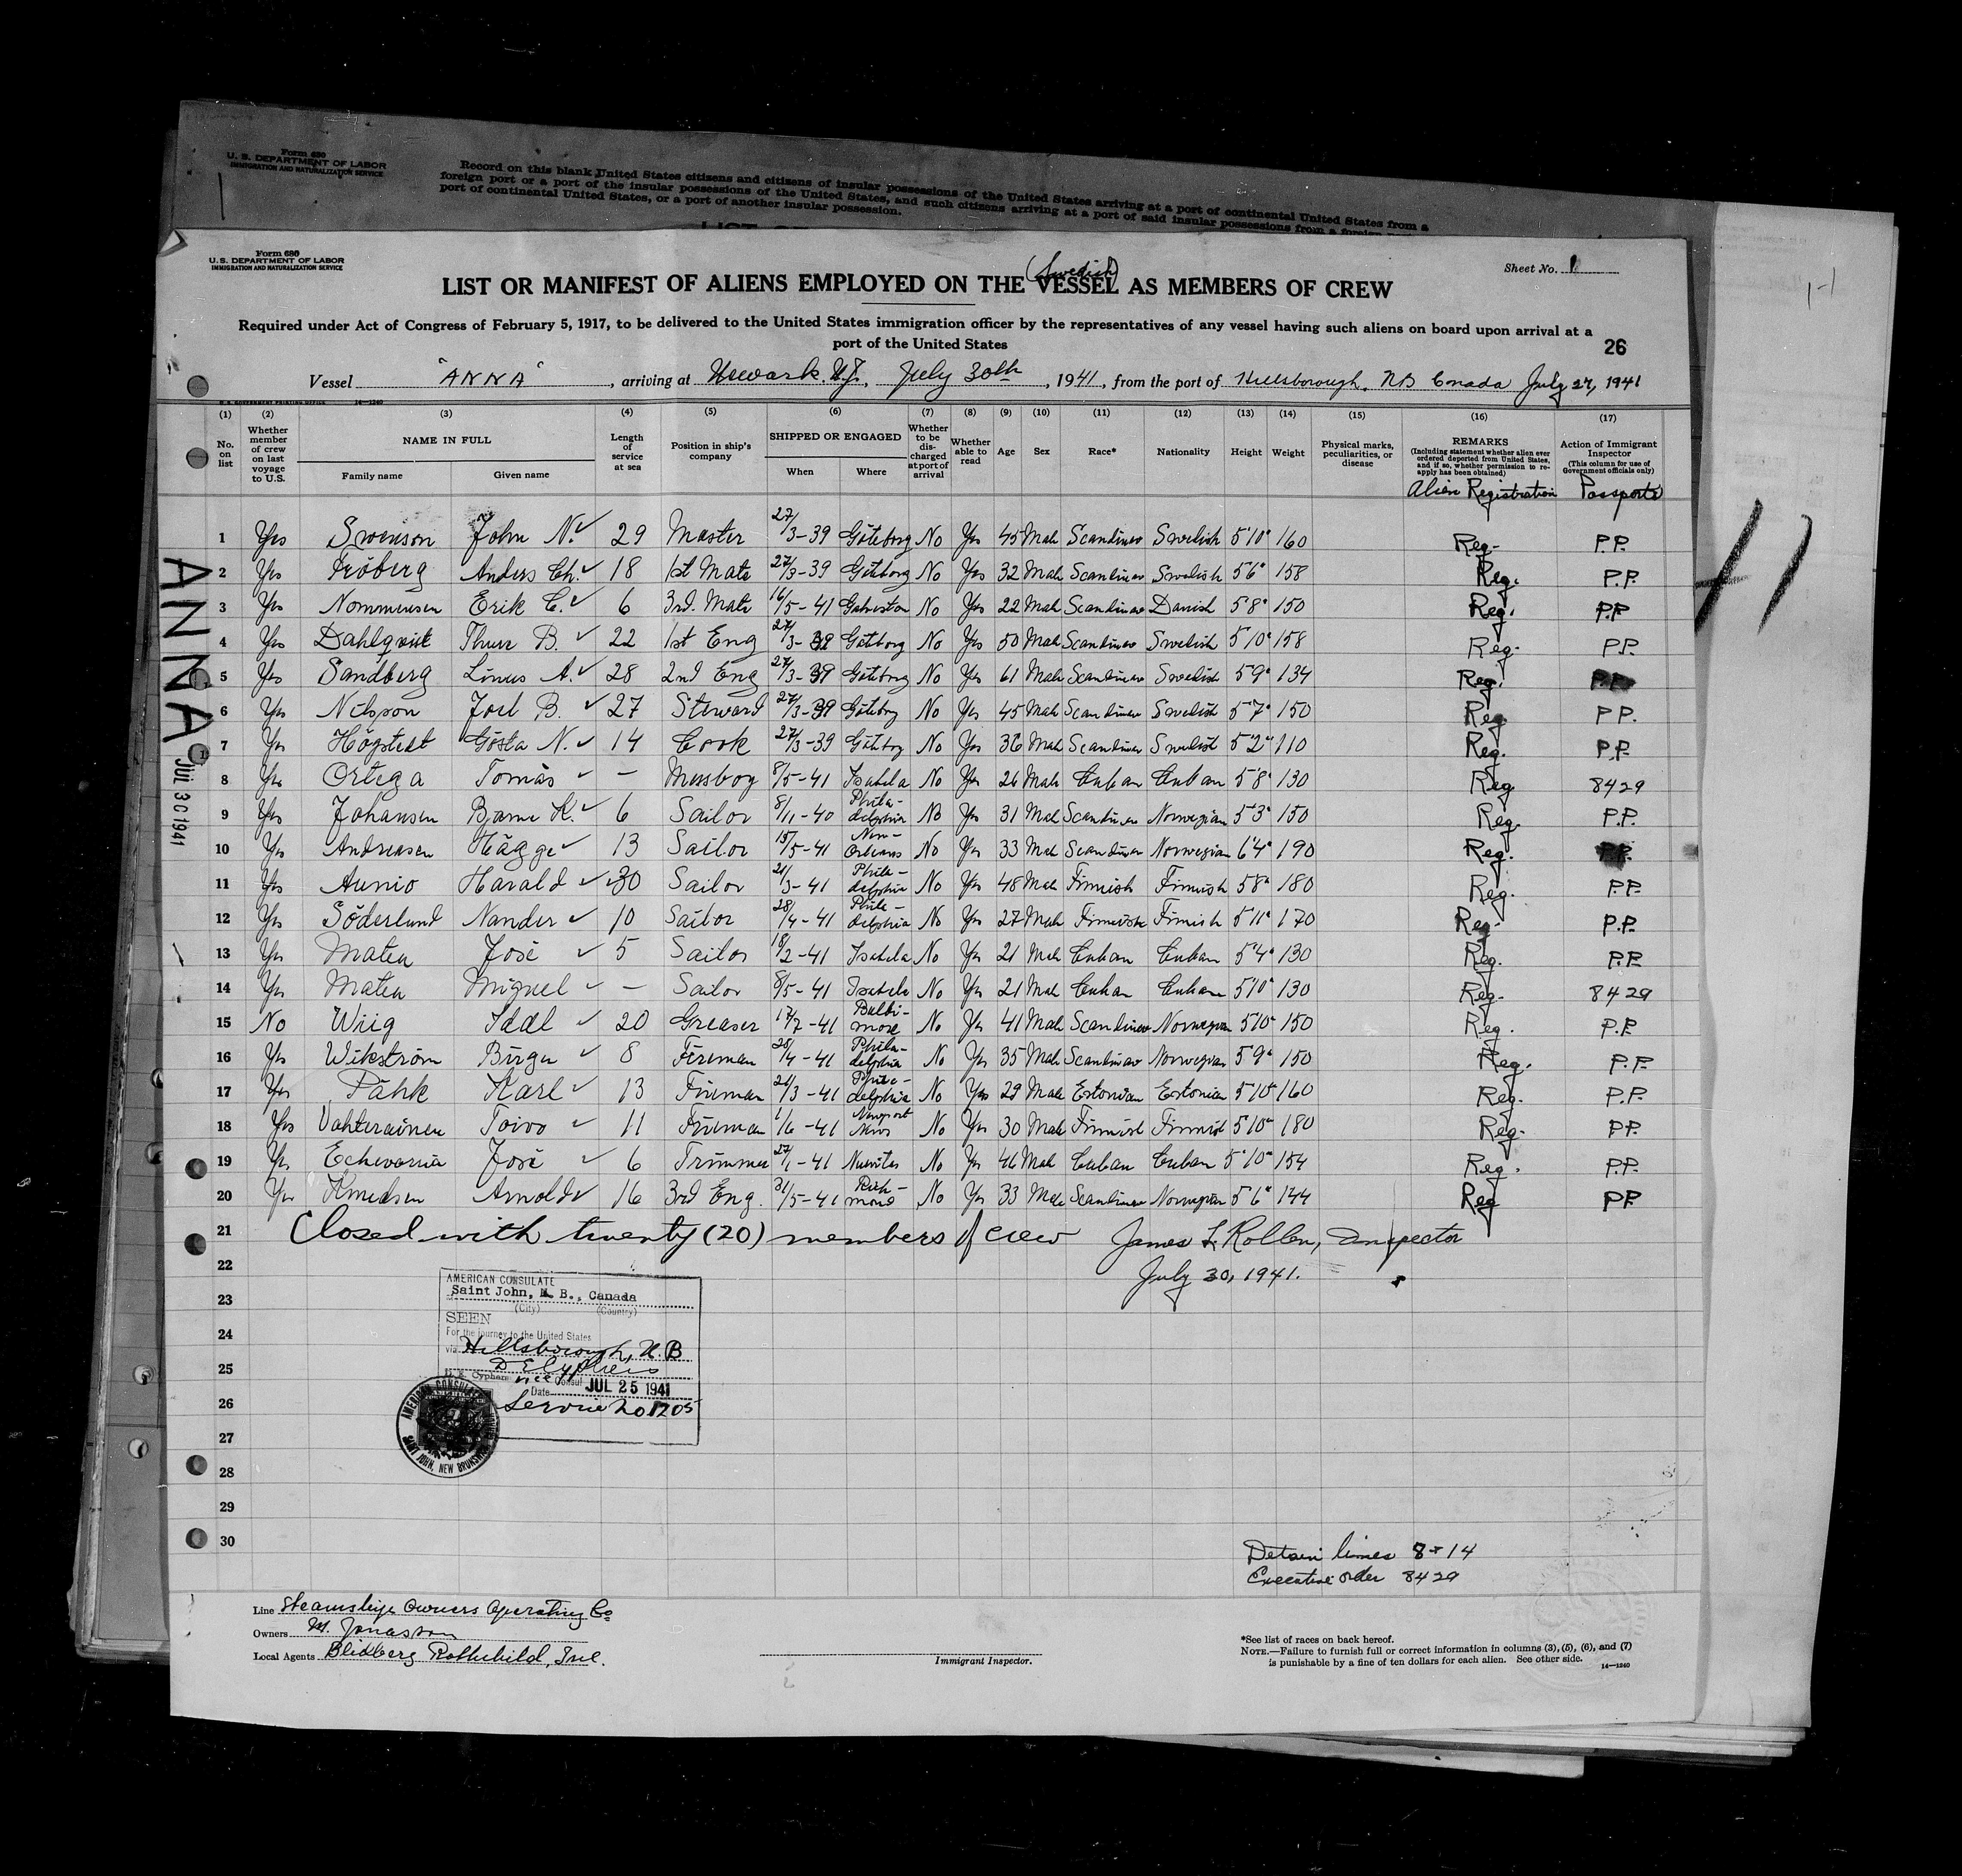 Form 630
U. S. DEPARTMENT OF LABOR
IMMIGRATION AND NATURALIZATION SERVICE
Record on this blank United States citizens and citizens of insular possessions of the United States arriving at a port of continental United States from a
foreign port or a port of the insular possessions of the United States, and such citizens arriving at a port of said insular possessions from a foreign
port of continental United States, or a port of another insular possession.
Form 680
U. S. DEPARTMENT OF LABOR
IMMIGRATION AND NATURALIZATION SERVICE
Sheet No. 1
(Swedish)
LIST OR MANIFEST OF ALIENS EMPLOYED ON THE VESSEL AS MEMBERS OF CREW
Required under Act of Congress of February 5, 1917, to be delivered to the United States immigration officer by the representatives of any vessel having such aliens on board upon arrival at a
port of the United States
26
Vessel "ANNA", arriving at Newark. N.J., July 30th, 1941, from the port of Hillsborough, NB Canada July 27, 1941
(1) (2) (3) (4) (5) (6) (7) (8) (9) (10) (11) (12) (13) (14) (15) (16) (17)
No. on list
Whether member of crew on last voyage to U.S.
NAME IN FULL
Family name Given name
Length of service at sea
Position in ship's company
SHIPPED OR ENGAGED
When Where
Whether to be discharged at port of arrival
Whether able to read
Age Sex Race* Nationality Height Weight
Physical marks, peculiarities, or disease
REMARKS
(Including statement whether alien ever ordered deported from United States, and if so, whether permission to reapply has been obtained)
Alien Registration
Action of Immigrant Inspector
(This column for use of Government officials only)
Passports
1 Yes Swenson John N. 29 Master 27/3-39 Göteborg No Yes 45 Male Scandinav Swedish 5'10" 160 Reg. P.P.
2 Yes Fröberg Anders Ch. 18 1st Mate 27/3-39 Göteborg No Yes 32 Male Scandinav Swedish 5'6" 158 Reg. P.P.
3 Yes Nommensen Erik C. 6 3rd. Mate 16/5-41 Galveston No Yes 22 Male Scandinav Danish 5'8" 150 Reg. P.P
4 Yes Dahlqvist Thure B. 22 1st Eng 27/3-39 Göteborg No Yes 50 Male Scandinav Swedish 5'10" 158 Reg. P.P.
5 Yes Sandberg Linus A. 28 2nd Eng 27/3-39 Göteborg No Yes 61 Male Scandinav Swedish 5'9" 134 Reg. P.P.
6 Yes Nilsson Joel B. 27 Steward 27/3-39 Göteborg No Yes 45 Male Scandinav Swedish 5'7" 150 Reg. P.P.
7 Yes Högstedt Gösta N. 14 Cook 27/3-39 Göteborg No Yes 36 Male Scandinav Swedish 5'2" 110 Reg. P.P.
8 Yes Ortega Tomás — Messboy 8/5-41 Isabela No Yes 26 Male Cuban Cuban 5'8" 130 Reg 8429
9 Yes Johansen Bjarne K. 6 Sailor 8/11-40 Philadelphia No Yes 31 Male Scandinav Norwegian 5'3" 150 Reg. P.P.
10 Yes Andreasen Hägge 13 Sailor 15/5-41 New-Orleans No Yes 33 Male Scandinav Norwegian 6'4" 190 Reg. P.P.
11 Yes Aunio Harald 30 Sailor 21/3-41 Philadelphia No Yes 48 Male Finnish Finnish 5'8" 180 Reg. P.P.
12 Yes Söderlund Nander 10 Sailor 28/4-41 Philadelphia No Yes 27 Male Finnish Finnish 5'11" 170 Reg- P.P.
13 Yes Matea José 5 Sailor 18/2-41 Isabela No Yes 21 Male Cuban Cuban 5'4" 130 Reg. P.P.
14 Yes Matea Miguel — Sailor 8/5-41 Isabela No Yes 21 Male Cuban Cuban 5'10" 130 Reg- 8429
15 No Wiig 20 Greaser 17/7-41 Baltimore No Yes 41 Male Scandinav Norwegian 5'10" 150 Reg. P.P.
16 Yes Wikström Birger 8 Fireman 28/4-41 Philadelphia No Yes 35 Male Scandinav Norwegian 5'9" 150 Reg. P.P.
17 Yes Pähk Karl 13 Fireman 21/3-41 Philadelphia No Yes 29 Male Estonian Estonian 5'10" 160 Reg. P.P.
18 Yes Vahterainen Toivo 11 Fireman 1/6-41 Newport News No Yes 30 Male Finnish Finnish 5'10" 180 Reg- P.P.
19 Yes Echevarria José 6 Trimmer 27/1-41 Nuevitas No Yes 46 Male Cuban Cuban 5'10" 154 Reg. P.P.
20 Yes Knudsen Arnold 16 3rd Eng. 31/5-41 Richmond No Yes 33 Male Scandinav Norwegian 5'6" 144 Reg P.P.
21 Closed with twenty (20) members of crew James L. Rollen, Inspector
22 July 30, 1941.
23
24
25
26
27
28
29
30
AMERICAN CONSULATE
Saint John, N. B., Canada
(City) (Country)
SEEN
For the journey to the United States
via Hillsborough, N.B
D E Cyphers
Vice Consul
Date JUL 25 1941
Service No. 1205
AMERICAN CONSULATE
SAINT JOHN, NEW BRUNSWICK
Detain lines 8+14
Executive order 8429
Line Steamship Owners Operating Co
Owners M. Jonasson
Local Agents Blidberg Rothchild, Inc.
Immigrant Inspector.
*See list of races on back hereof.
NOTE.—Failure to furnish full or correct information in columns (3), (5), (6), and (7)
is punishable by a fine of ten dollars for each alien. See other side.
14—1240
ANNA
JUL 30 1941
41
1-1